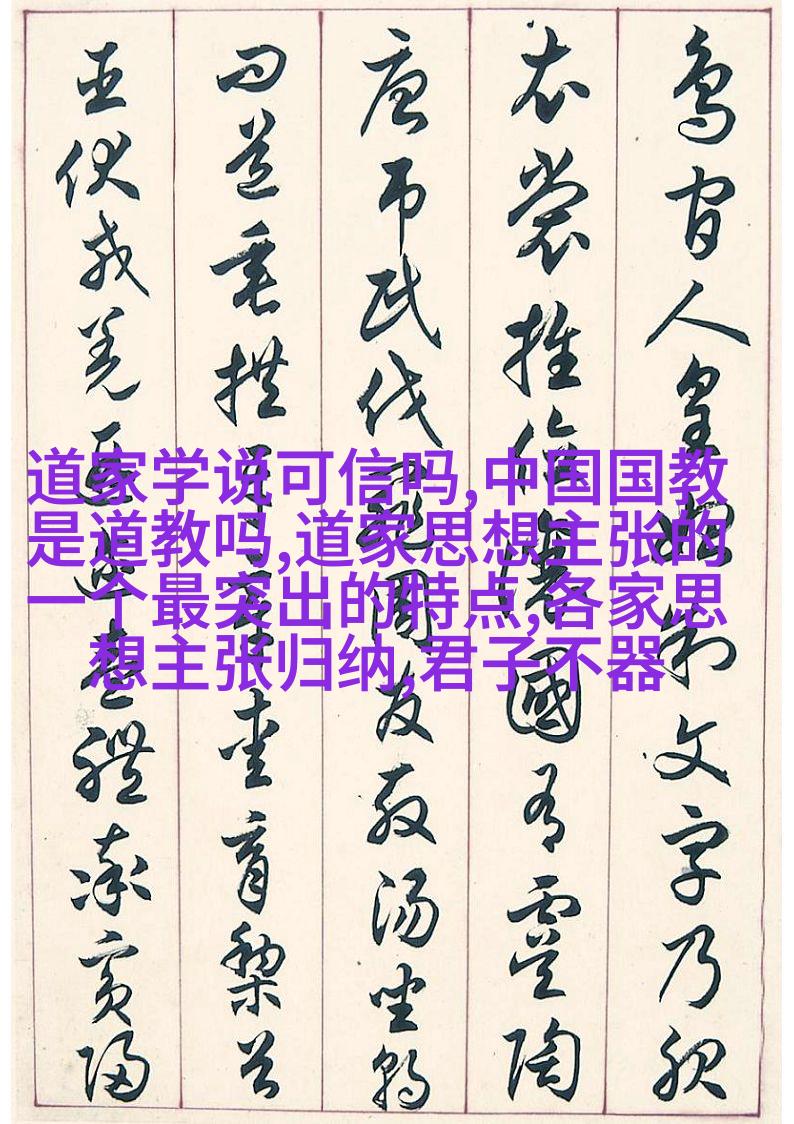 鳥官人皇始制文字乃服
衣裳推位讓國有虞陶
唐吊民伐罪周發殷湯坐朝
問道垂拱平章愛育黎首
臣伏戎羌遐邇壹體率賓歸
道家学说可信吗,中国国教
是道教吗,道家思想主张的
一个最突出的特点,各家思
想主张归纳,君子不器